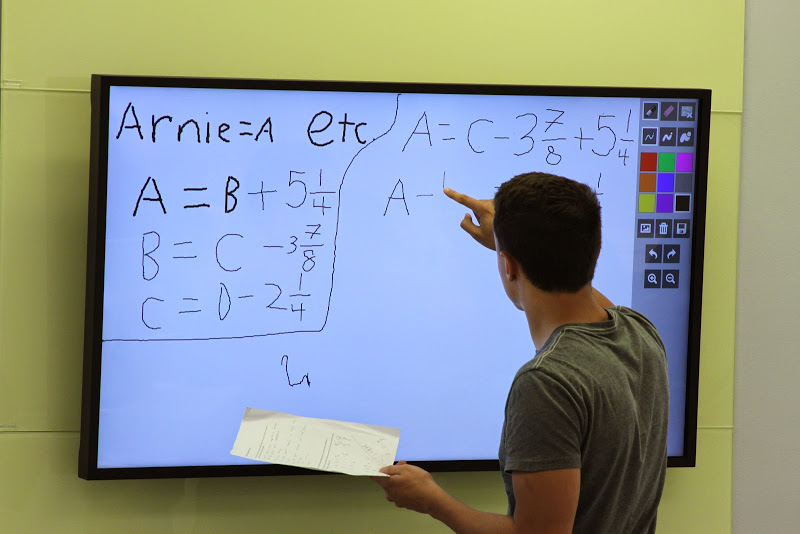 Arnie=A etc
A = B + 5 1/4
B = C - 3 7/8
C = D - 2 1/4
A = C - 3 7/8 + 5 1/4
A -